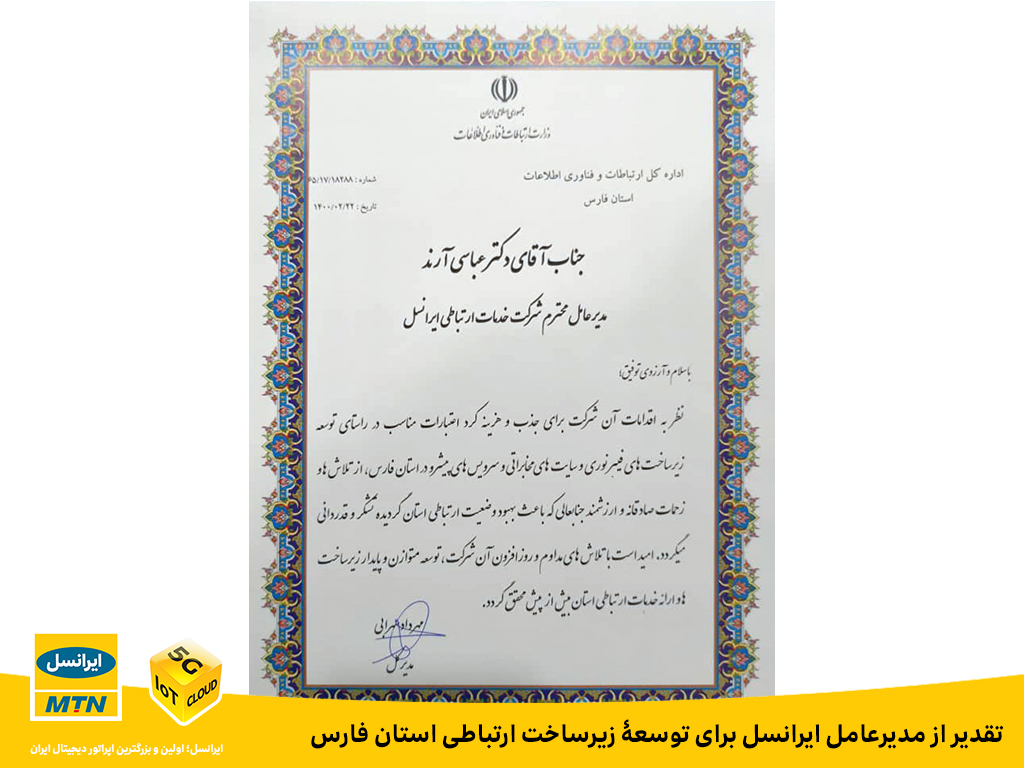 جمهوری اسلامی ایران
وزارت ارتباطات و فناوری اطلاعات
اداره کل ارتباطات و فناوری اطلاعات
استان فارس
شماره : ۶۵/۱۷/۱۸۲۸۸
تاریخ : ۱۴۰۰/۰۲/۲۲
جناب آقای دکتر عباسی آرند
مدیرعامل محترم شرکت خدمات ارتباطی ایرانسل
با سلام و آرزوی توفیق؛
نظر به اقدامات آن شرکت برای جذب و هزینه کرد اعتبارات مناسب در راستای توسعه
زیرساخت های فیبر نوری و سایت های مخابراتی و سرویس های پیشرو در استان فارس، از تلاش ها و
زحمات صادقانه و ارزشمند جنابعالی که باعث بهبود وضعیت ارتباطی استان گردیده تشکر و قدردانی
میگردد. امید است با تلاش های مداوم و روز افزون آن شرکت، توسعه متوازن و پایدار زیرساخت
ها و ارائه خدمات ارتباطی استان بیش از پیش محقق گردد.
مهرداد سهرابی
مدیر کل
ایرانسل
MTN
5G
IoT
CLOUD
ایرانسل؛ اولین و بزرگترین اپراتور دیجیتال ایران
تقدیر از مدیرعامل ایرانسل برای توسعهٔ زیرساخت ارتباطی استان فارس